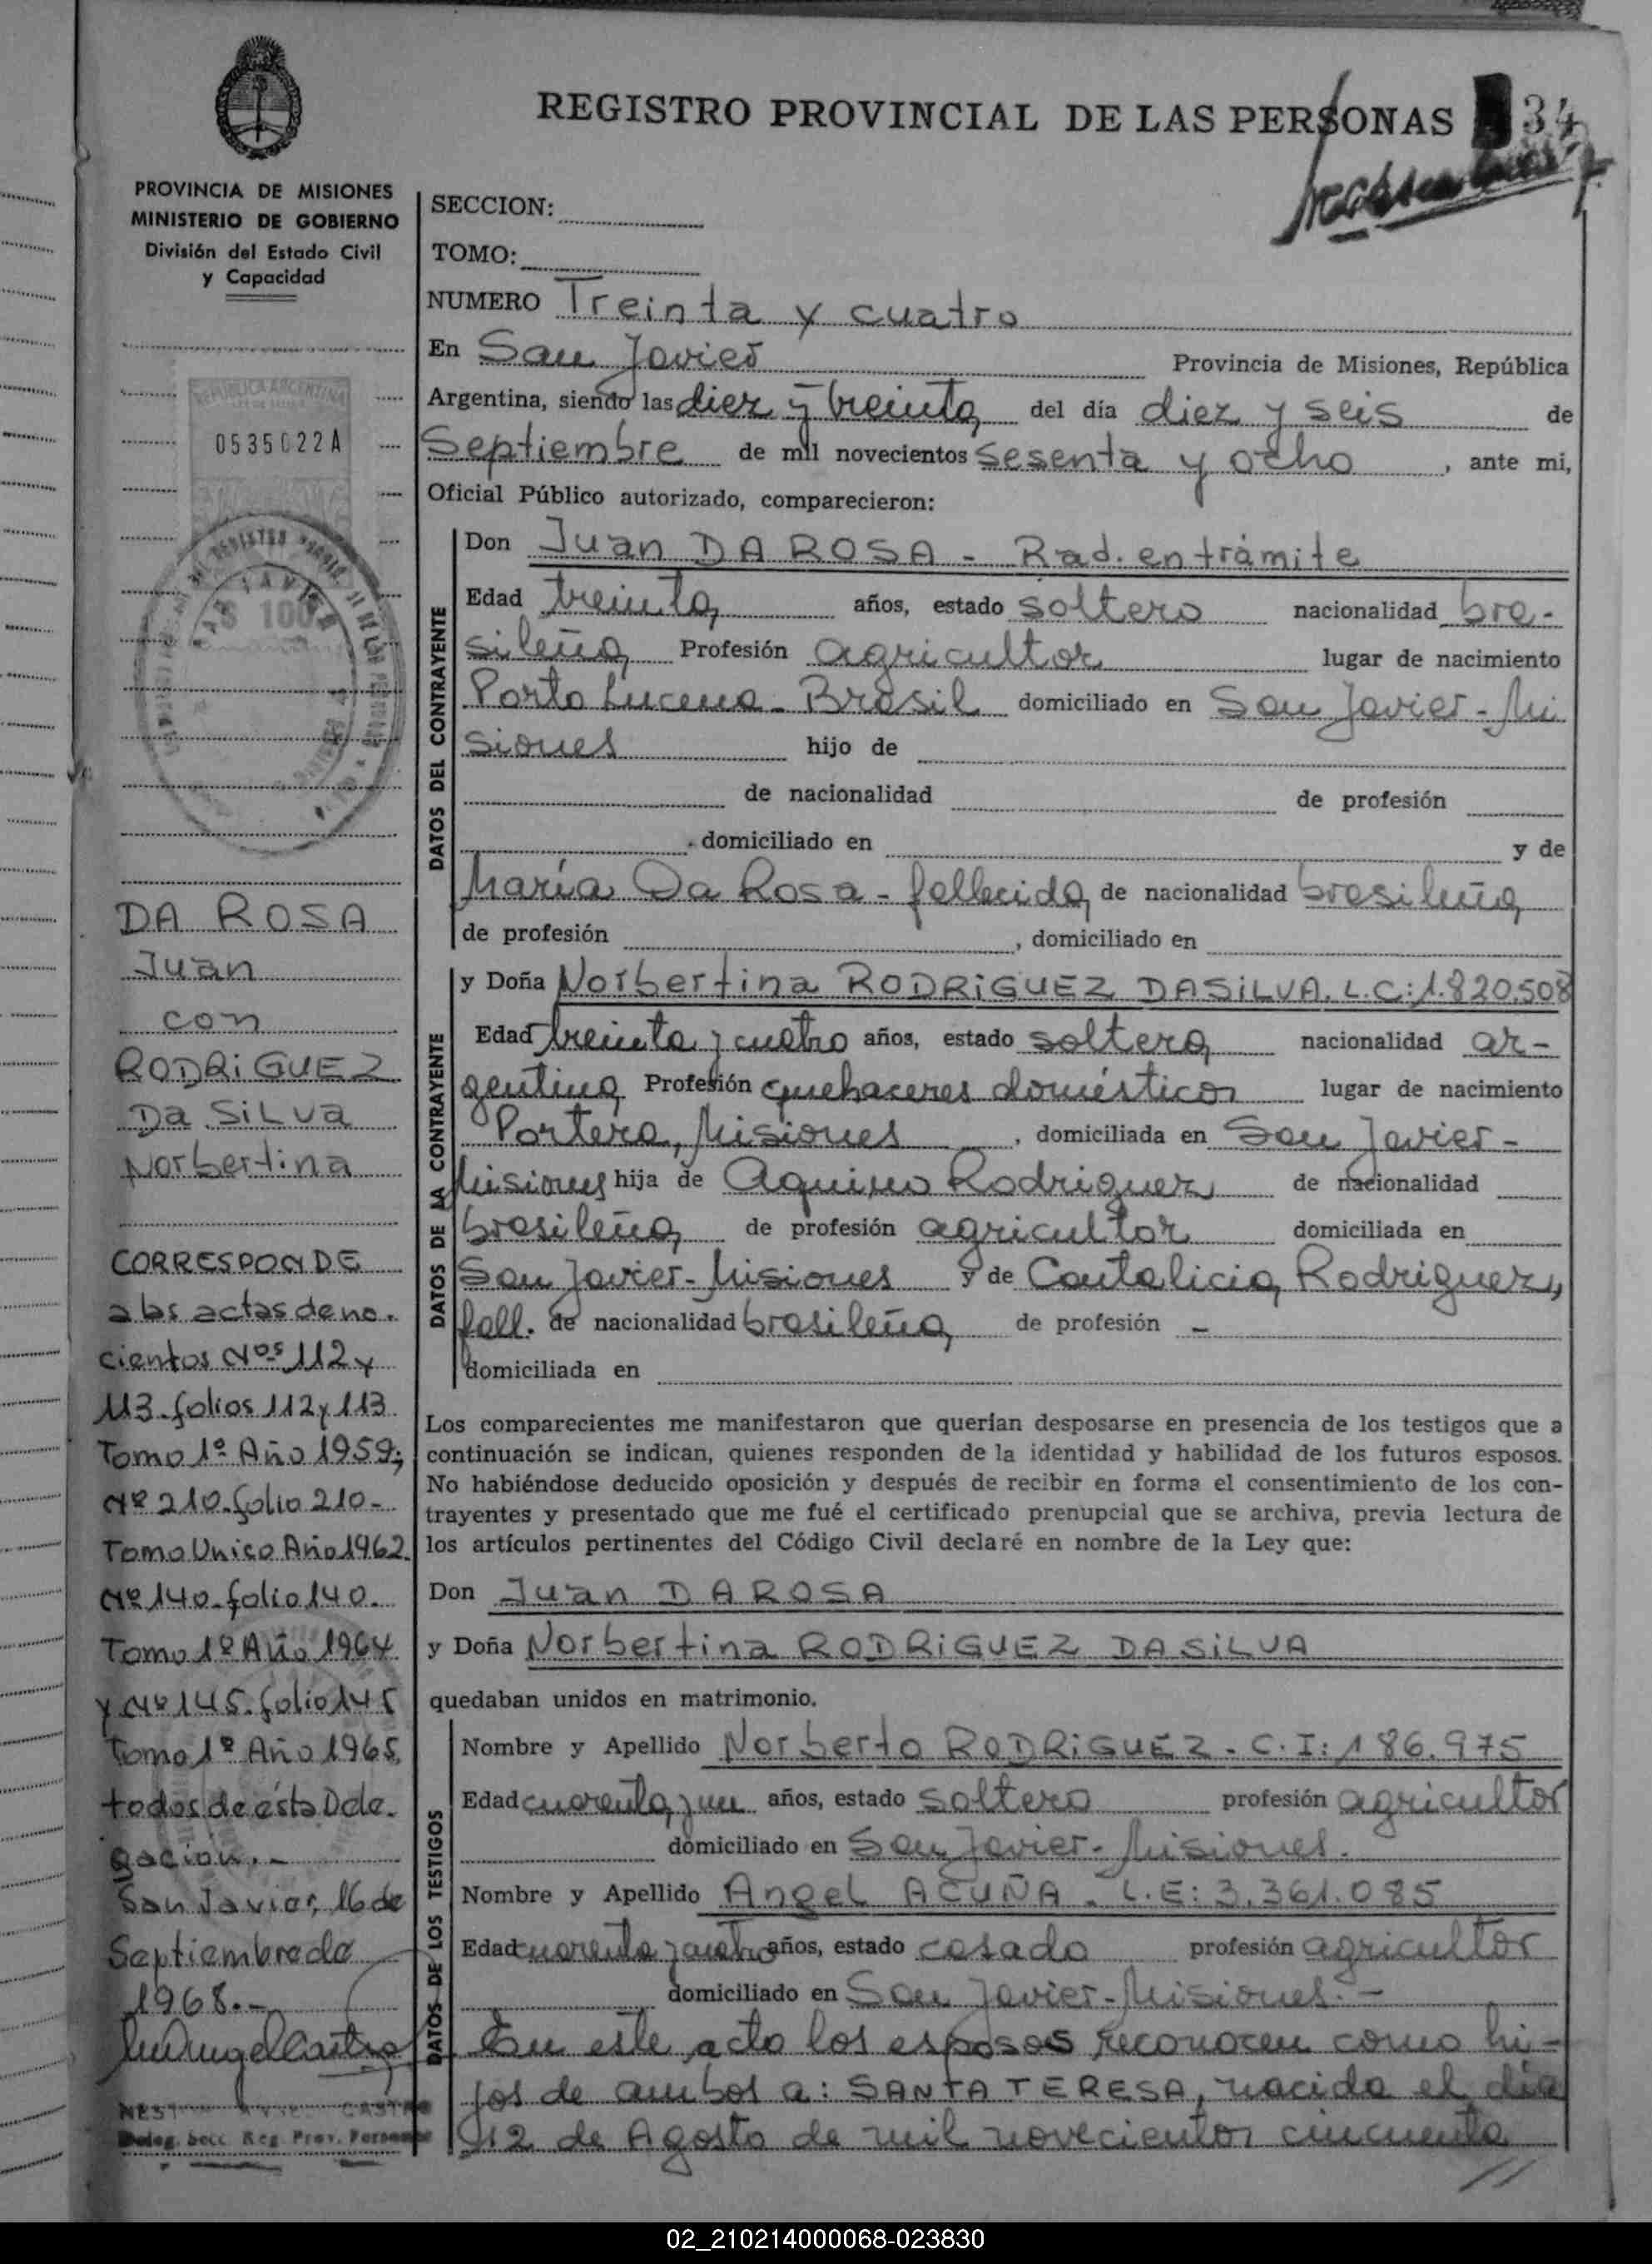 REGISTRO PROVINCIAL DE LAS PERSONAS 34
PROVINCIA DE MISIONES
MINISTERIO DE GOBIERNO
División del Estado Civil
y Capacidad
REPUBLICA ARGENTINA
0535022A
DA ROSA
Juan
con
RODRIGUEZ
Da SiLVa
Norbertina
CORRESPONDE
a las actas de na-
cientos Nos 112 y
113-folios 112 y 113
Tomo 1º Año 1959;
Nº 210-folio 210-
Tomo Unico Año 1962.
Nº 140-folio 140.
Tomo 1º Año 1964
y Nº 145-folio 145
Tomo 1º Año 1965,
todos de ésta Dele-
gación.-
San Javier, 16 de
Septiembre de
1968.-
CASTRO
Deleg. Secc. Reg. Prov. Personas
SECCION:
TOMO:
NUMERO Treinta y cuatro
En San Javier Provincia de Misiones, República
Argentina, siendo las diez y treinta del día diez y seis de
Septiembre de mil novecientos sesenta y ocho, ante mi,
Oficial Público autorizado, comparecieron:
DATOS DEL CONTRAYENTE
Don Juan DA ROSA - Rad. en trámite
Edad treinta años, estado soltero nacionalidad bra-
sileña Profesión agricultor lugar de nacimiento
Porto Lucena - Brasil domiciliado en San Javier - Mi
siones hijo de
de nacionalidad de profesión
domiciliado en y de
María Da Rosa - fallecida de nacionalidad brasileña
de profesión , domiciliado en
DATOS DE LA CONTRAYENTE
y Doña Norbertina RODRiGUEZ DASiLVA. L.C: 1.820.508
Edad treinta y cuatro años, estado soltera nacionalidad ar-
gentina Profesión quehaceres domésticos lugar de nacimiento
Portera, Misiones, domiciliada en San Javier -
Misiones hija de Aquino Rodriguez de nacionalidad
brasileña de profesión agricultor domiciliada en
San Javier - Misiones y de Cantalicia Rodriguez,
fall. de nacionalidad brasileña de profesión -
domiciliada en
Los comparecientes me manifestaron que querían desposarse en presencia de los testigos que a
continuación se indican, quienes responden de la identidad y habilidad de los futuros esposos.
No habiéndose deducido oposición y después de recibir en forma el consentimiento de los con-
trayentes y presentado que me fué el certificado prenupcial que se archiva, previa lectura de
los artículos pertinentes del Código Civil declaré en nombre de la Ley que:
Don Juan DA ROSA
y Doña Norbertina RODRiGUEZ DASiLVA
quedaban unidos en matrimonio.
DATOS DE LOS TESTIGOS
Nombre y Apellido Norberto RODRiGUEZ - C.I: 186.975
Edad cuarenta y un años, estado soltero profesión agricultor
domiciliado en San Javier - Misiones.
Nombre y Apellido Angel ACUÑA - L.E: 3.361.085
Edad cuarenta y cuatro años, estado casado profesión agricultor
domiciliado en San Javier - Misiones.-
En este acto los esposos reconocen como hi-
jos de ambos a: SANTA TERESA, nacida el día
12 de Agosto de mil novecientos cincuenta
//
02_210214000068-023830